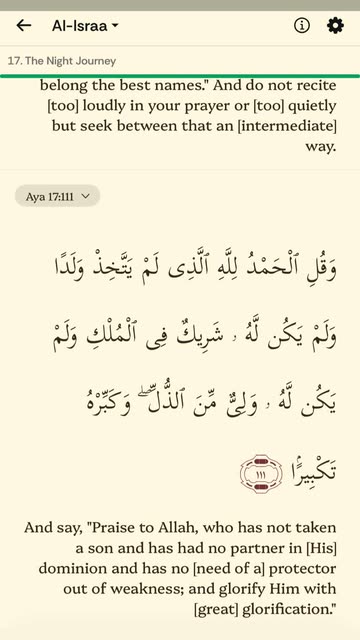 Al-Israa
17. The Night Journey
belong the best names." And do not recite
[too] loudly in your prayer or [too] quietly
but seek between that an [intermediate]
way.
Aya 17:111
وَقُلِ ٱلْحَمْدُ لِلَّهِ ٱلَّذِى لَمْ يَتَّخِذْ وَلَدًا
وَلَمْ يَكُن لَّهُۥ شَرِيكٌ فِى ٱلْمُلْكِ وَلَمْ
يَكُن لَّهُۥ وَلِىٌّ مِّنَ ٱلذُّلِّ ۖ وَكَبِّرْهُ
تَكْبِيرًۢا ١١١
And say, "Praise to Allah, who has not taken
a son and has had no partner in [His]
dominion and has no [need of a] protector
out of weakness; and glorify Him with
[great] glorification."